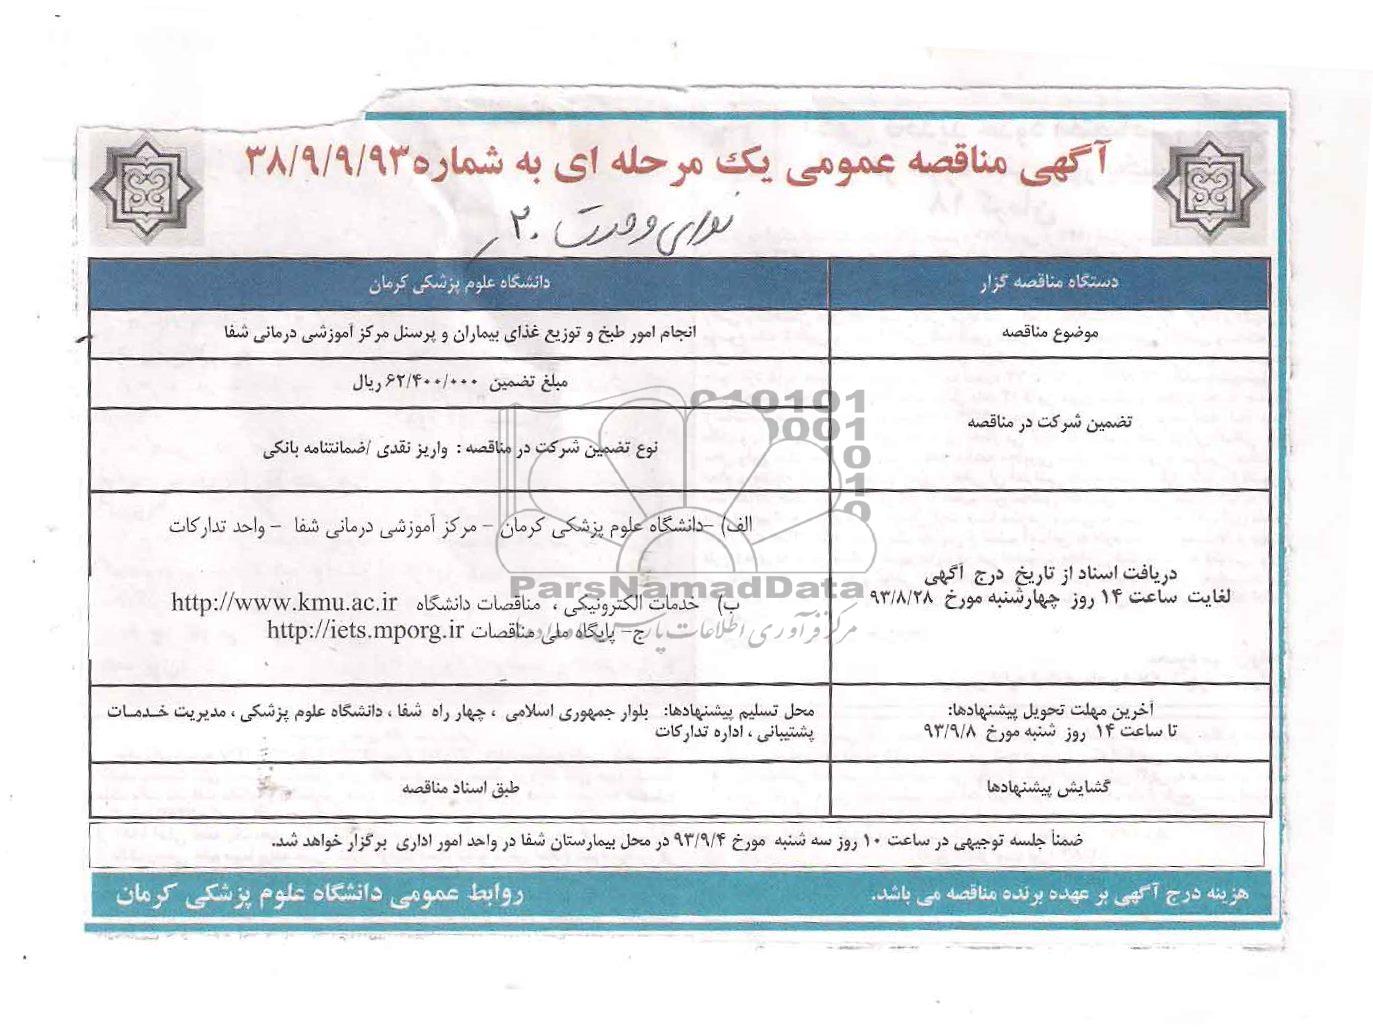 آگهی مناقصه عمومی یک مرحله ای به شماره ۳۸/۹/۹/۹۳
ندای وحدت ۲۰
دستگاه مناقصه گزار
دانشگاه علوم پزشکی کرمان
موضوع مناقصه
انجام امور طبخ و توزیع غذای بیماران و پرسنل مرکز آموزشی درمانی شفا
تضمین شرکت در مناقصه
مبلغ تضمین ۶۲/۴۰۰/۰۰۰ ریال
نوع تضمین شرکت در مناقصه : واریز نقدی /ضمانتنامه بانکی
دریافت اسناد از تاریخ درج آگهی
لغایت ساعت ۱۴ روز چهارشنبه مورخ ۹۳/۸/۲۸
الف) -دانشگاه علوم پزشکی کرمان - مرکز آموزشی درمانی شفا - واحد تدارکات
ب) خدمات الکترونیکی ، مناقصات دانشگاه http://www.kmu.ac.ir
ج- پایگاه ملی مناقصات http://iets.mporg.ir
آخرین مهلت تحویل پیشنهادها:
تا ساعت ۱۴ روز شنبه مورخ ۹۳/۹/۸
محل تسلیم پیشنهادها: بلوار جمهوری اسلامی ، چهار راه شفا ، دانشگاه علوم پزشکی ، مدیریت خدمات
پشتیبانی ، اداره تدارکات
گشایش پیشنهادها
طبق اسناد مناقصه
ضمناً جلسه توجیهی در ساعت ۱۰ روز سه شنبه مورخ ۹۳/۹/۴ در محل بیمارستان شفا در واحد امور اداری برگزار خواهد شد.
هزینه درج آگهی بر عهده برنده مناقصه می باشد.
روابط عمومی دانشگاه علوم پزشکی کرمان
ParsNamadData
مرکز فرآوری اطلاعات پارس نماد داده ها